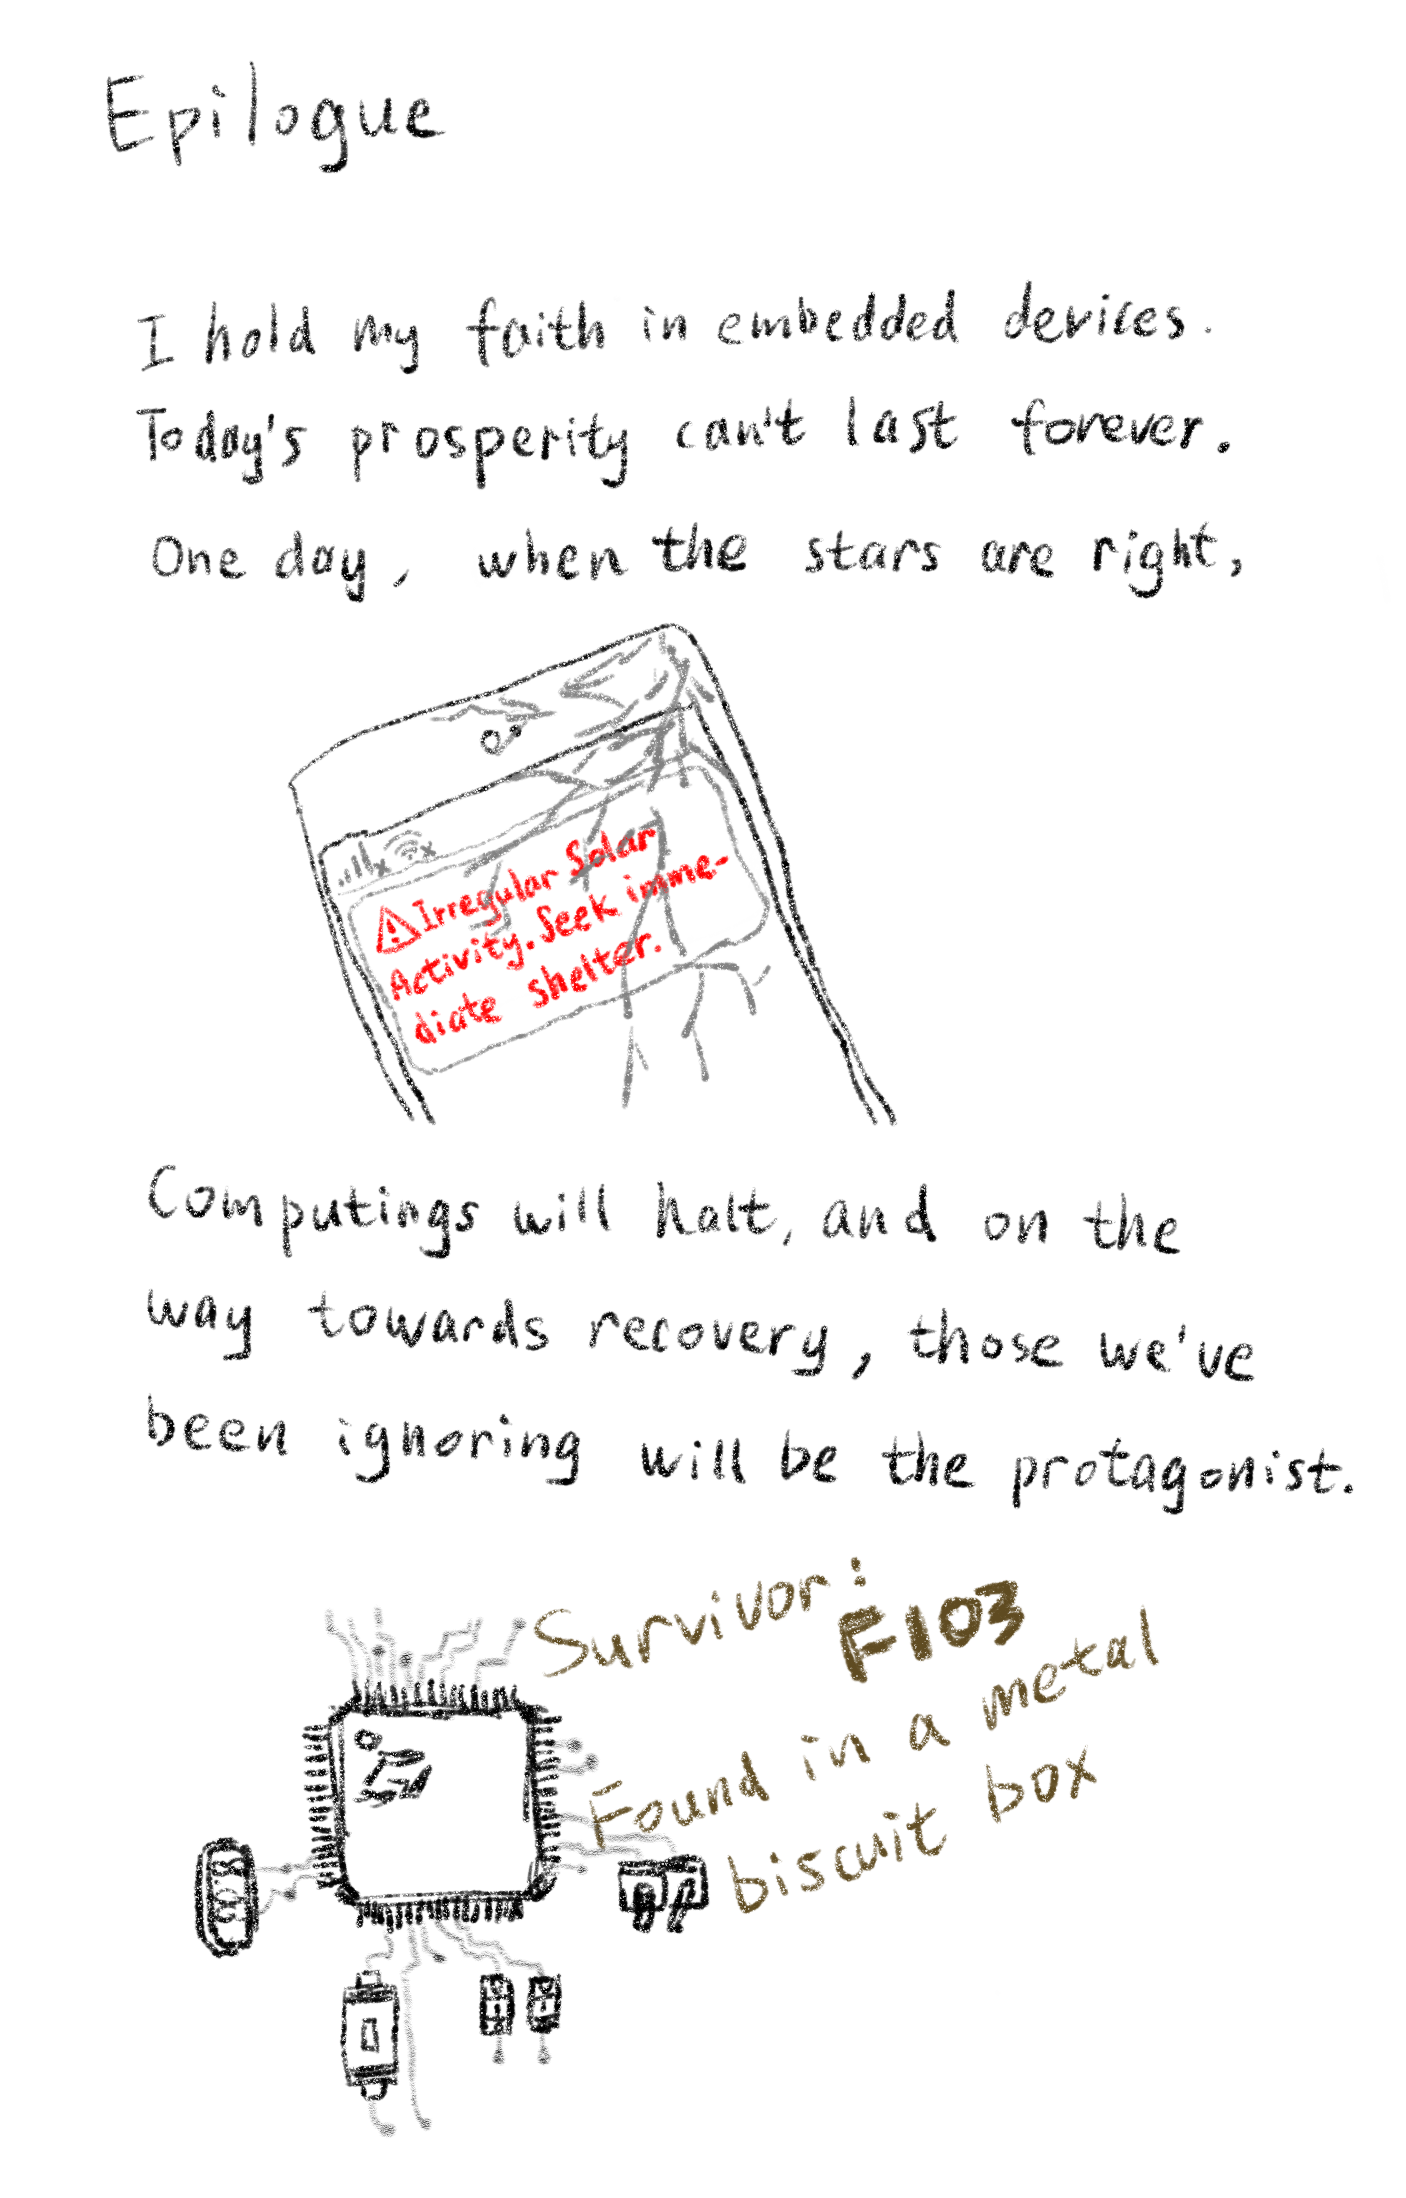 Epilogue
I hold my faith in embedded devices.
Today's prosperity can't last forever.
One day, when the stars are right,
⚠Irregular Solar
Activity. Seek imme-
diate shelter.
Computings will halt, and on the
way towards recovery, those we've
been ignoring will be the protagonist.
Survivor: F103
Found in a metal
biscuit box